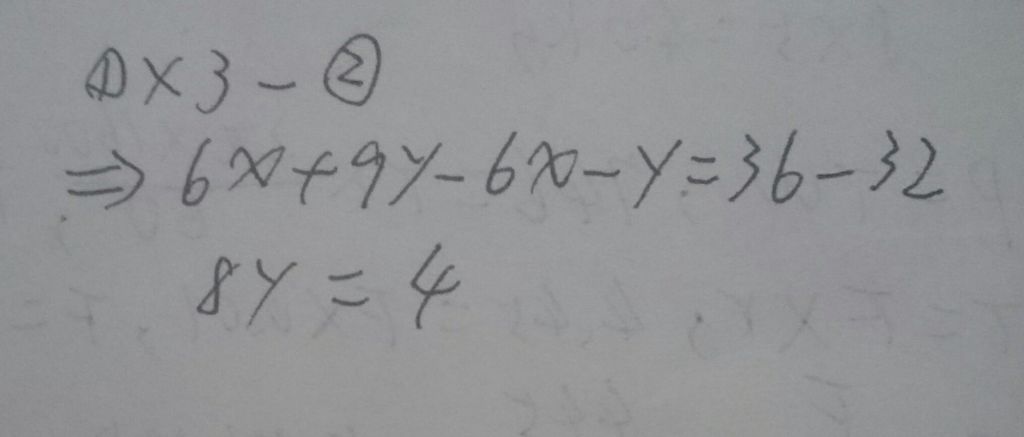 ①×3-②
⇒6x+9y-6x-y=36-32
8y=4